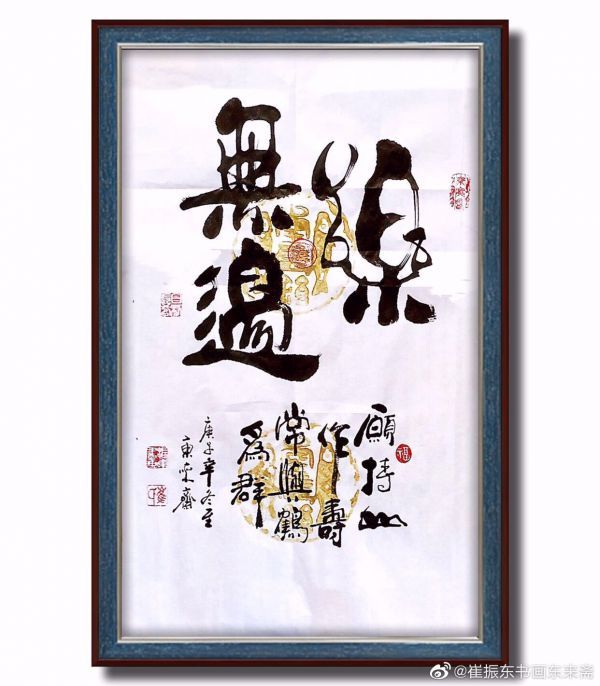 樂
無邊
願持山
作壽
常與鶴
爲群
庚子辛冬至
東耒齋
福
@崔振东书画东耒斋